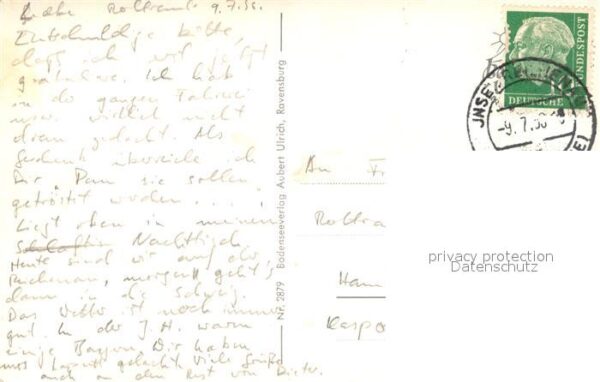 Liebe Roltraut 9.7.56.
Entschuldige bitte,
dass ich erst jetzt
gratuliere. Ich hab
in der ganzen Fahrerei
nicht
dran gedacht. Als
Geschenk überreiche ich
Dir „Denn sie sollen
getröstet werden . . .
Liegt oben in meinem
Nachttisch.
Heute sind wir auf der
Reichenau, morgen geht's
dann in die Schweiz.
Das Wetter ist noch immer
gut. In der J.H. waren
einige Bayern. Wir haben
uns gelacht. Viele Grüße
auch an den Rest von Dieter.
Nr. 2879 Bodenseeverlag Aubert Ulrich, Ravensburg
DEUTSCHE BUNDESPOST
INSEL REICHENAU
-9.7.56
An Fr
Roltra
Ham
Kaspo
privacy protection
Datenschutz